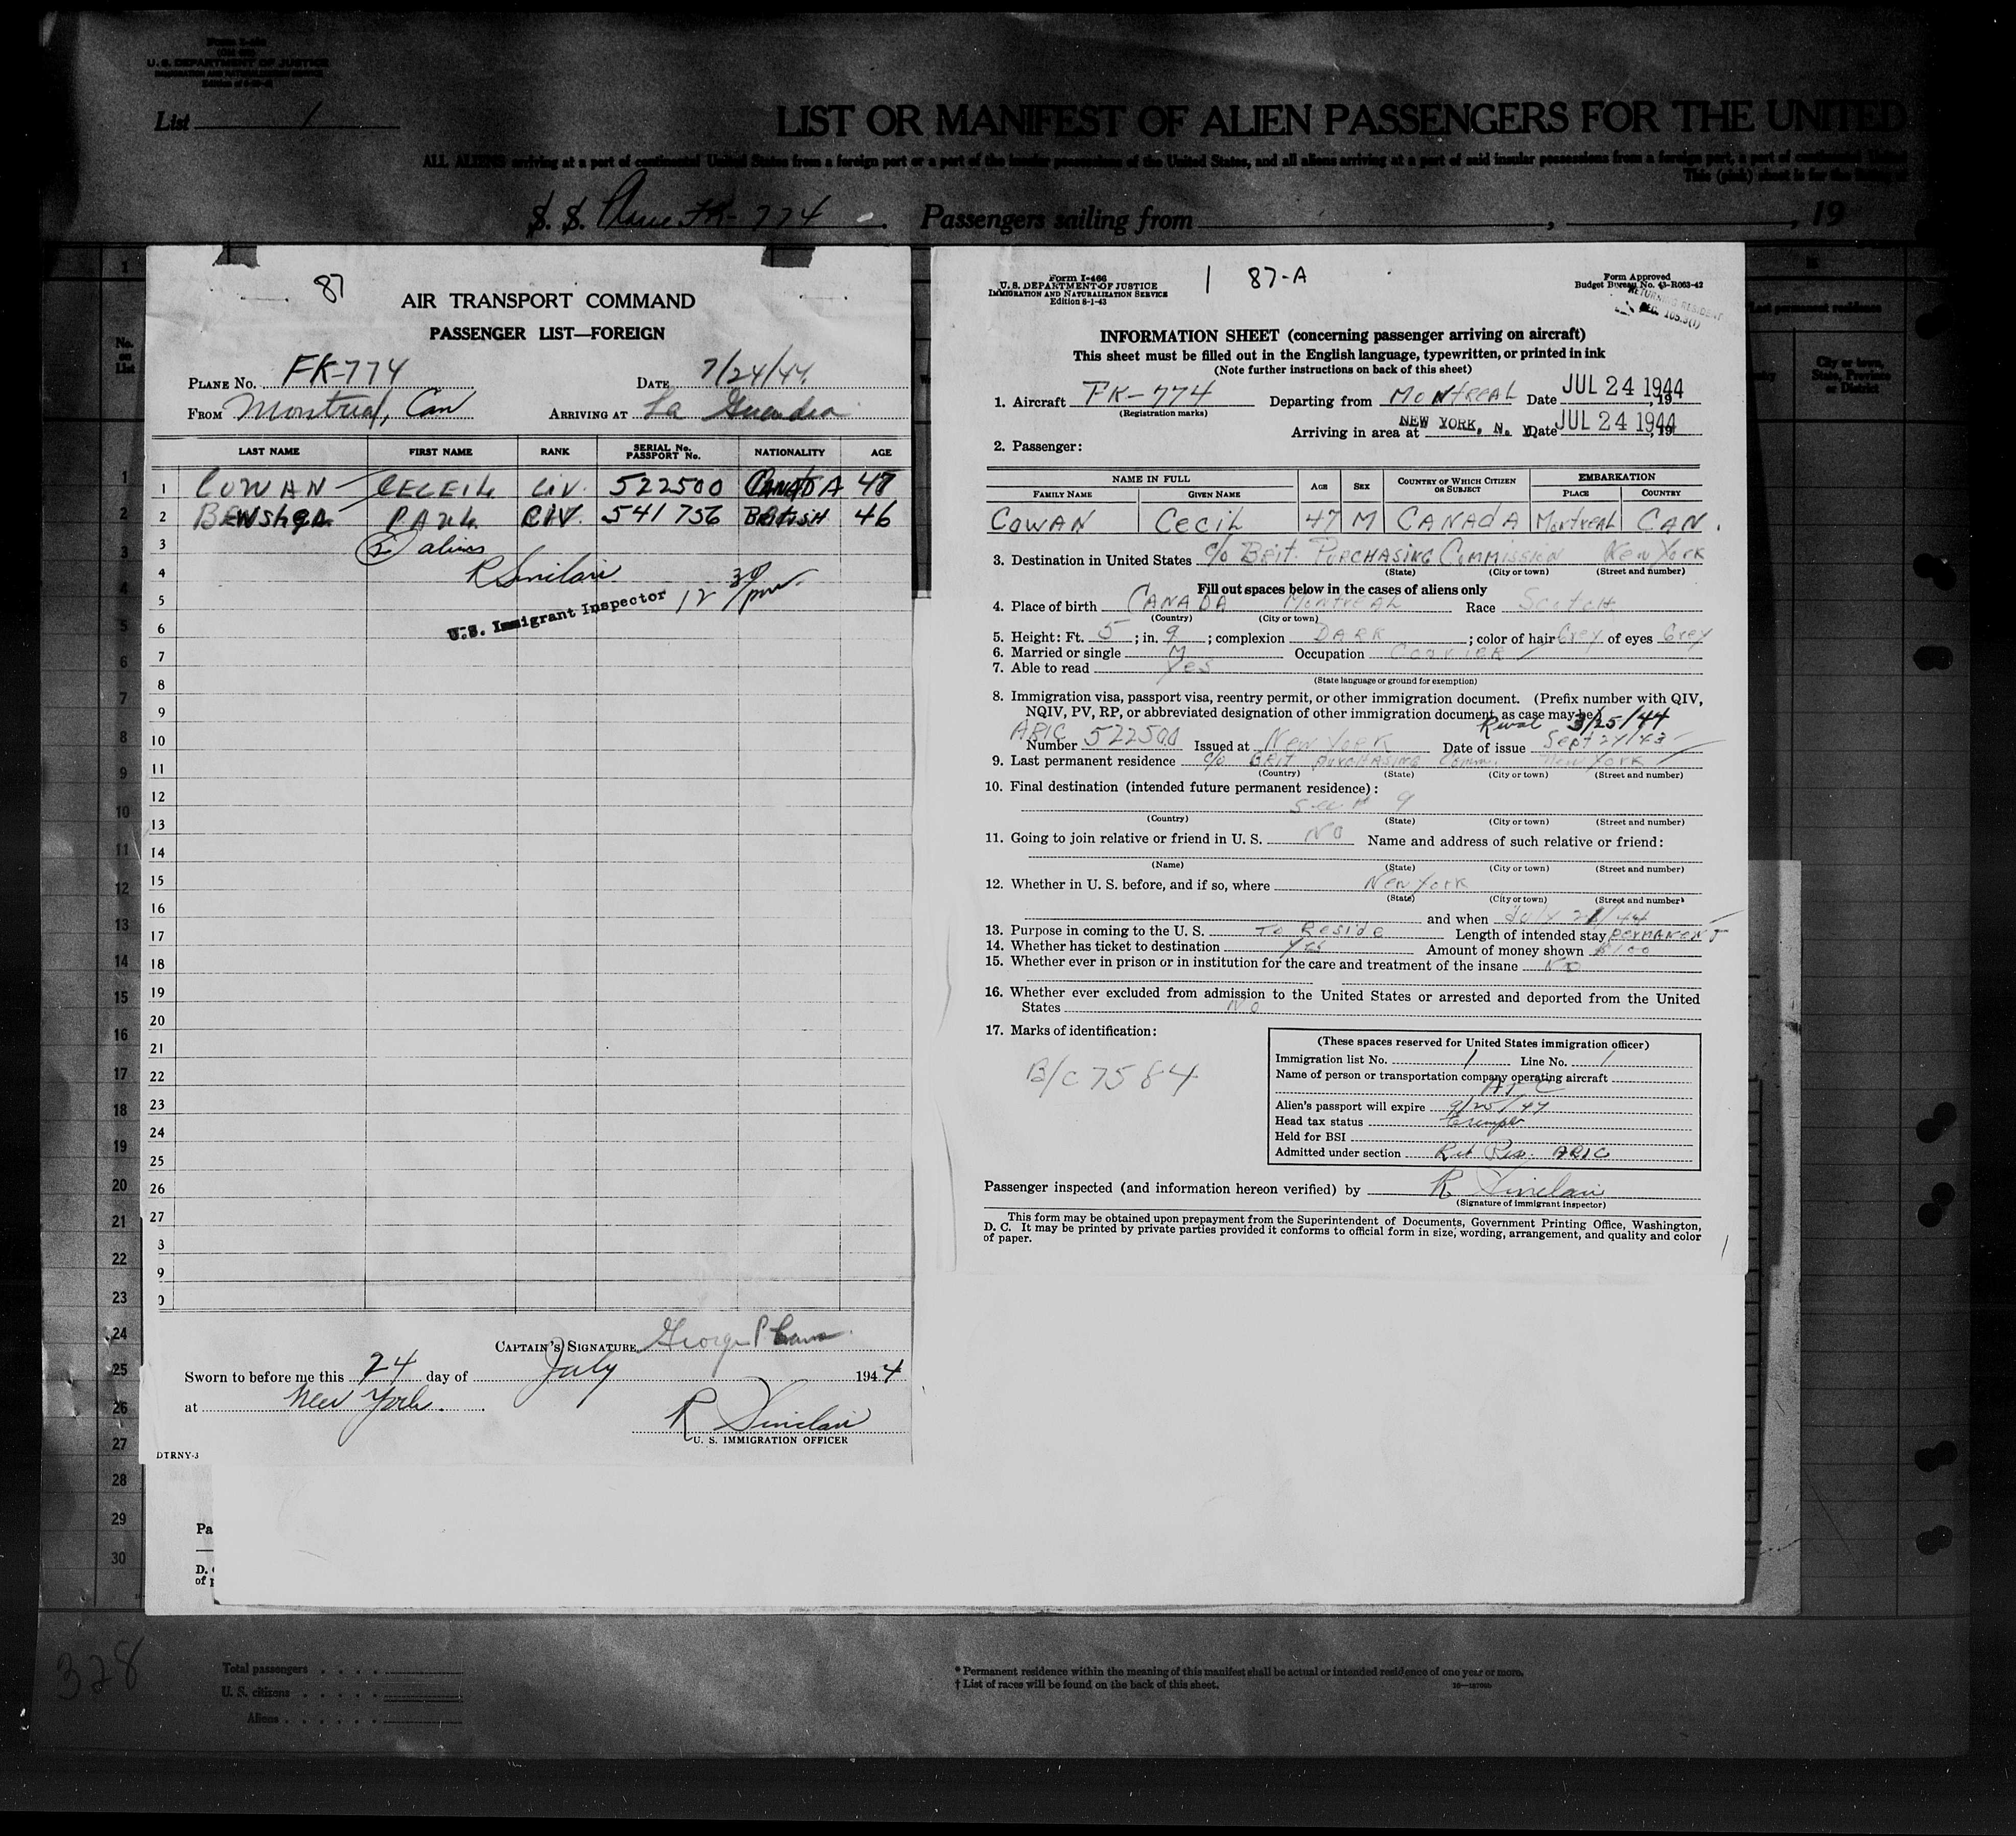 U. S. DEPARTMENT OF JUSTICE
IMMIGRATION AND NATURALIZATION SERVICE
List 1
LIST OR MANIFEST OF ALIEN PASSENGERS FOR THE UNITED
ALL ALIENS arriving at a port of continental United States from a foreign port or a port of the insular possessions of the United States, and all aliens arriving at a port of said insular possessions from a foreign port, a port of continental United
This (pink) sheet is for the listing of
S. S. FK-774 Passengers sailing from , , 19
87
AIR TRANSPORT COMMAND
PASSENGER LIST—FOREIGN
PLANE No. FK-774 DATE 7/24/44
FROM Montreal, Can ARRIVING AT La Guardia
LAST NAME FIRST NAME RANK SERIAL No. PASSPORT No. NATIONALITY AGE
1 COWAN CECEIL CIV. 522500 CANADA 47
2 PAUL CIV. 541756 BRITISH 46
3 (2) aliens
4 R Sinclair
5 U.S. Immigrant Inspector 12 30/pm
6
7
8
9
10
11
12
13
14
15
16
17
18
19
20
21
22
23
24
25
26
27
3
9
0
CAPTAIN'S SIGNATURE George P
Sworn to before me this 24 day of July 1944
at New York.
R Sinclair
U. S. IMMIGRATION OFFICER
DTRNY-3
Form I-466
U. S. DEPARTMENT OF JUSTICE
IMMIGRATION AND NATURALIZATION SERVICE
Edition 8-1-43
1 87-A
Form Approved
Budget Bureau No. 43-R063-42
RETURNING RESIDENT
SEC. 105.3(1)
INFORMATION SHEET (concerning passenger arriving on aircraft)
This sheet must be filled out in the English language, typewritten, or printed in ink
(Note further instructions on back of this sheet)
1. Aircraft FK-774 Departing from MONTREAL Date JUL 24 1944, 19
(Registration marks)
Arriving in area at NEW YORK, N. Y. Date JUL 24 1944, 19
2. Passenger:
NAME IN FULL AGE SEX COUNTRY OF WHICH CITIZEN OR SUBJECT EMBARKATION
FAMILY NAME GIVEN NAME PLACE COUNTRY
COWAN CECIL 47 M CANADA Montreal CAN.
3. Destination in United States c/o BRIT. PURCHASING COMMISSION New York
(State) (City or town) (Street and number)
Fill out spaces below in the cases of aliens only
4. Place of birth CANADA Montreal Race Scotch
(Country) (City or town)
5. Height: Ft. 5; in. 9; complexion DARK; color of hair Grey of eyes Grey
6. Married or single M Occupation Courier
7. Able to read Yes
(State language or ground for exemption)
8. Immigration visa, passport visa, reentry permit, or other immigration document. (Prefix number with QIV,
NQIV, PV, RP, or abbreviated designation of other immigration document, as case may be)
3/25/44
ARIC
Number 522500 Issued at New York Date of issue Sept 24/43
9. Last permanent residence c/o BRIT PURCHASING Comm. New York
(Country) (State) (City or town) (Street and number)
10. Final destination (intended future permanent residence):
See # 9
(Country) (State) (City or town) (Street and number)
11. Going to join relative or friend in U. S. No Name and address of such relative or friend:
(Name) (State) (City or town) (Street and number)
12. Whether in U. S. before, and if so, where New York
(State) (City or town) (Street and number)
and when July 21/44
13. Purpose in coming to the U. S. To Reside Length of intended stay PERMANENT
14. Whether has ticket to destination Yes Amount of money shown $100
15. Whether ever in prison or in institution for the care and treatment of the insane No
16. Whether ever excluded from admission to the United States or arrested and deported from the United
States No
17. Marks of identification:
B/C 7584
(These spaces reserved for United States immigration officer)
Immigration list No. 1 Line No. 1
Name of person or transportation company operating aircraft
ATC
Alien's passport will expire 9/25/47
Head tax status Exempt
Held for BSI
Admitted under section Ret Res. ARIC
Passenger inspected (and information hereon verified) by R Sinclair
(Signature of immigrant inspector)
This form may be obtained upon prepayment from the Superintendent of Documents, Government Printing Office, Washington,
D. C. It may be printed by private parties provided it conforms to official form in size, wording, arrangement, and quality and color
of paper.
Pa
D.
of
328
Total passengers
U. S. citizens
Aliens
* Permanent residence within the meaning of this manifest shall be actual or intended residence of one year or more.
† List of races will be found on the back of this sheet.